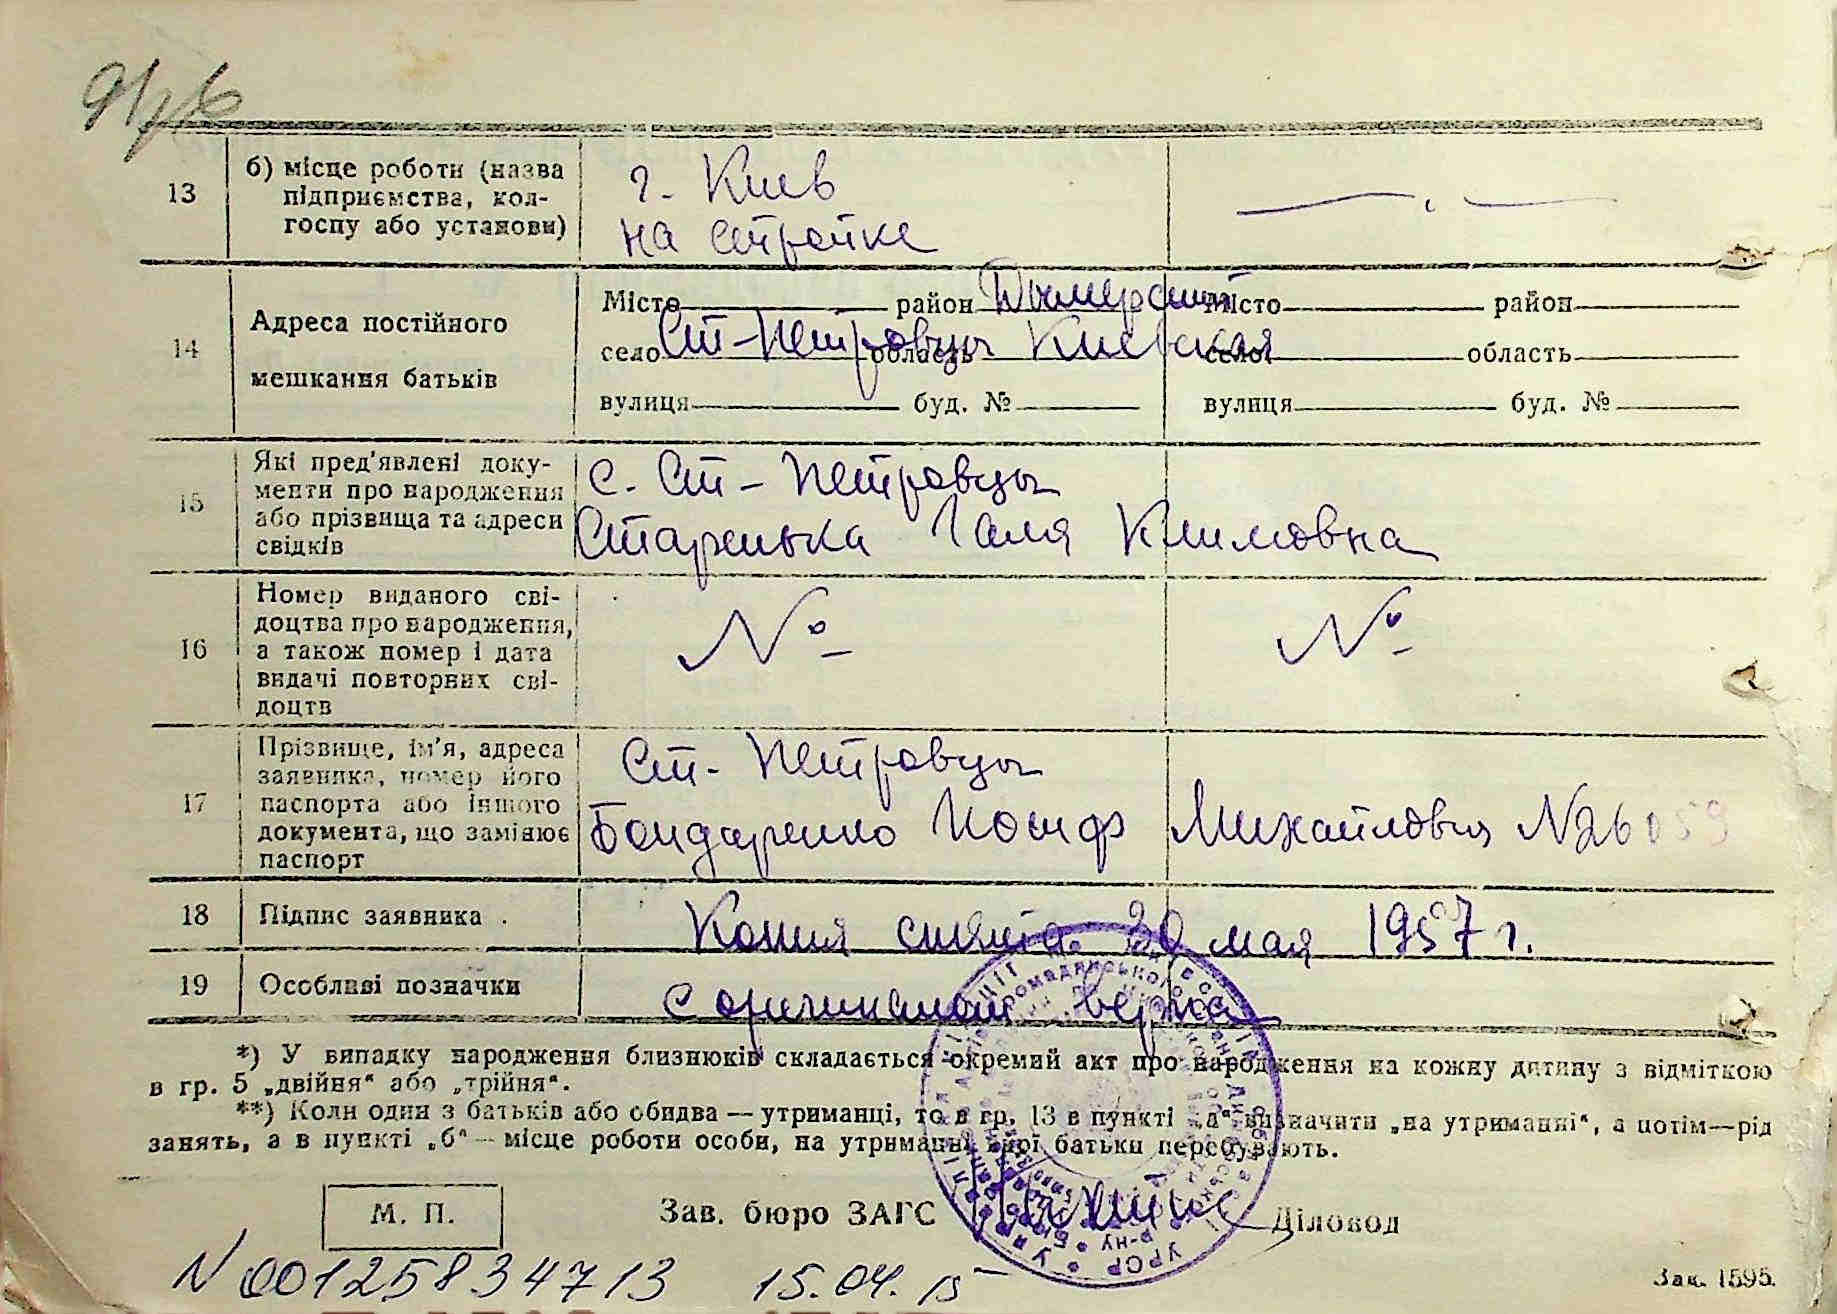 13
б) місце роботи (назва
підприємства, кол-
госпу або установи)
г. Киев
на стройке
14
Адреса постійного
мешкання батьків
Місто район Дымерский
село Ст-Петровцы область Киевская
вулиця буд. №
Місто район
село область
вулиця буд. №
15
Які пред'явлені доку-
менти про народження
або прізвища та адреси
свідків
с. Ст-Петровцы
Старенька Галя Климовна
16
Номер виданого сві-
доцтва про народження,
а також номер і дата
видачі повторних сві-
доцтв
№
№
17
Прізвище, ім'я, адреса
заявника, номер його
паспорта або іншого
документа, що замінює
паспорт
Ст-Петровцы
Бондаренко Иосиф Михайлович №26059
18
Підпис заявника
Копия снята 30 мая 1957 г.
19
Особливі позначки
с оригиналом верна
*) У випадку народження близнюків складається окремий акт про народження на кожну дитину з відміткою
в гр. 5 „двійня“ або „трійня“.
**) Коли один з батьків або обидва — утриманці, то в гр. 13 в пункті „а“ визначити „на утриманні“, а потім—рід
занять, а в пункті „б“ — місце роботи особи, на утриманні якої батьки перебувають.
М. П.
Зав. бюро ЗАГС
Діловод
N 00125834713 15.04.15
Зак. 1595.